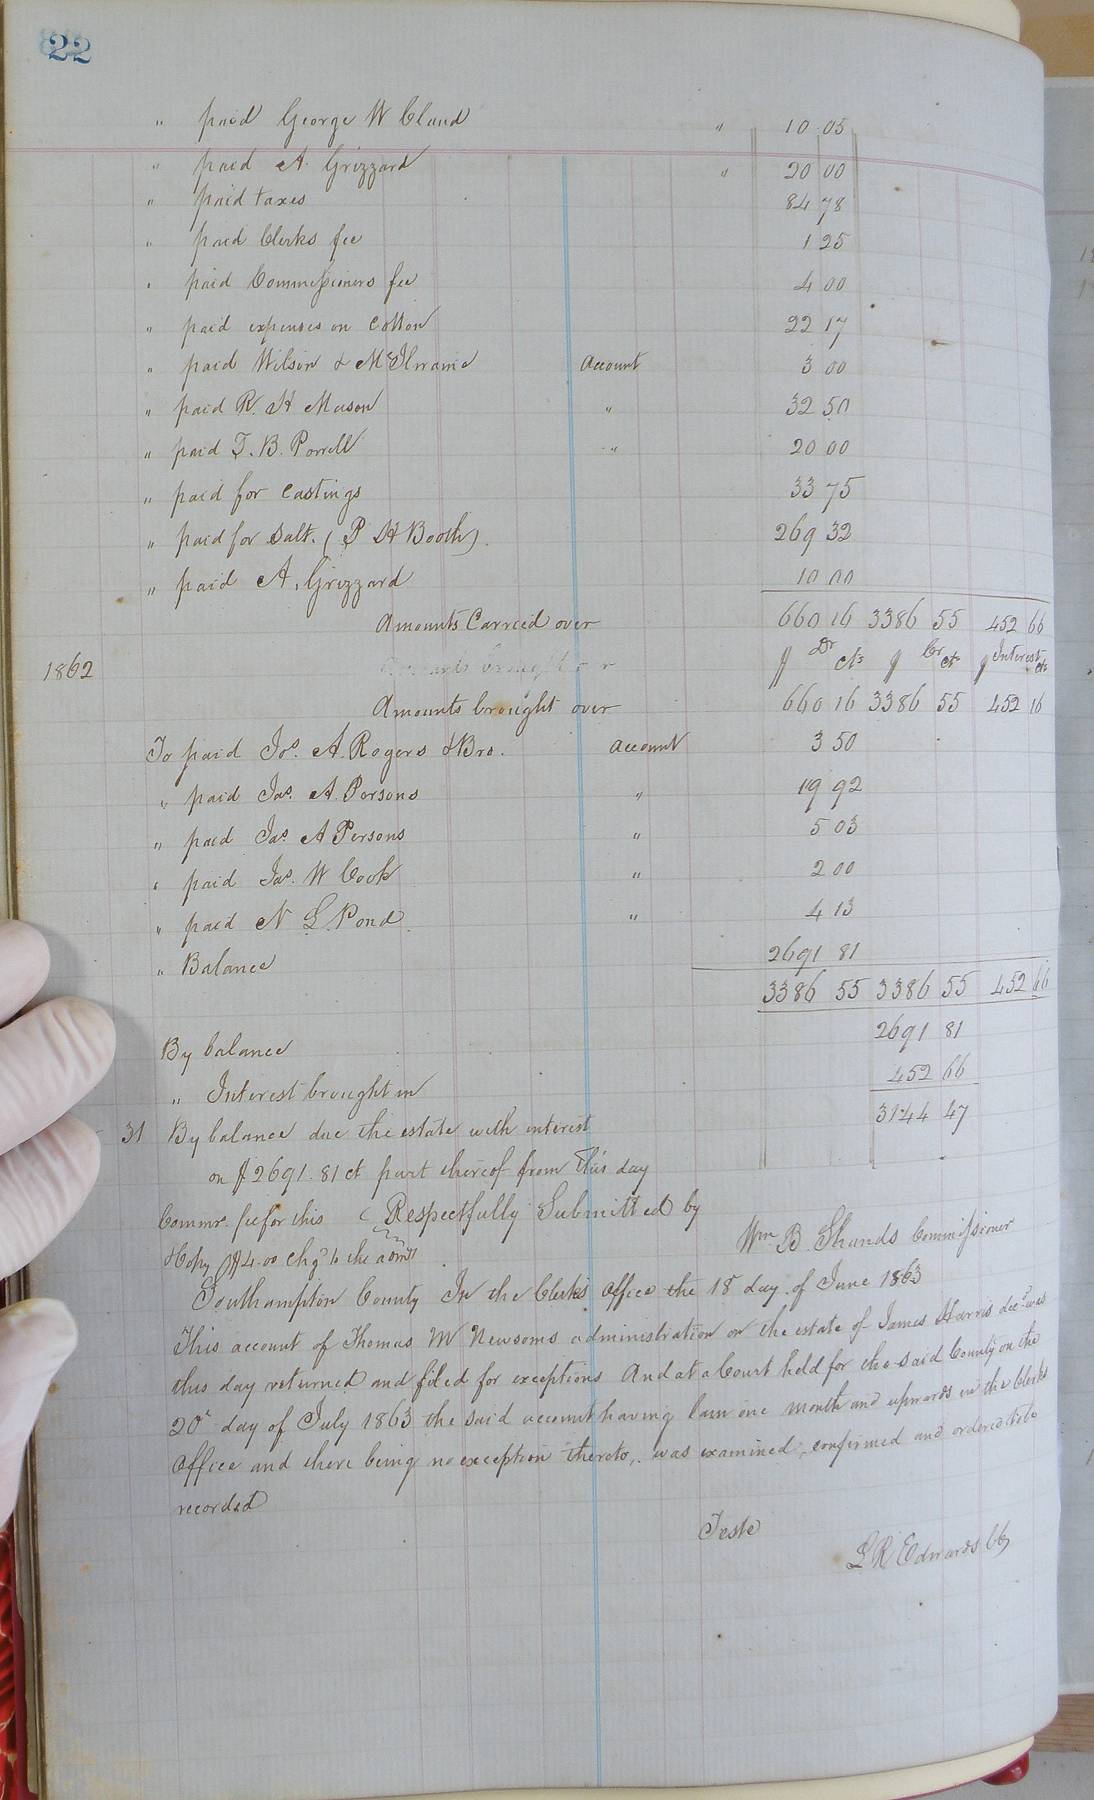 22
" paid George W Claud " 10 05
" paid A. Grizzard " 20 00
" paid taxes 84 78
" paid Clerks fee 1 25
" paid Commissioners fee 4 00
" paid expenses on Cotton 22 17
" paid Wilson & McIlwaine Account 3 00
" paid R. H Mason " 32 50
" paid T. B. Porrell " 20 00
" paid for Castings 33 75
" paid for Salt. (P H Booth). 269 32
" paid A. Grizzard 10 00
Amounts Carried over 660 16 3386 55 452 66
1862 Amounts brought over $ Dr cts $ Cr cts $ Interest cts
Amounts brought over 660 16 3386 55 452 16
To paid Jos. A. Rogers & Bro. Account 3 50
" paid Jas. A. Parsons " 19 92
" paid Jas A Persons " 5 03
" paid Jas. W Cook " 2 00
" paid N L Pond. " 4 13
" Balance 2691 81
3386 55 3386 55 452 66
By balance 2691 81
" Interest brought in 452 66
31 By balance due the estate with interest 3144 47
on $2691.81 ct part thereof from this day
Commr. fee for this ( Respectfully Submitted by
& Copy $4.00 chgd to the admr. Wm B. Shands Commissioner
Southampton County In the Clerks Office the 18 day of June 1863
This account of Thomas W Newsoms administration on the estate of James Harris decd was
this day returned and filed for exceptions And at a Court held for the said County on the
20th day of July 1863 the said account having lain one month and upwards in the Clerks
Office and there being no exception thereto, was examined, confirmed and ordered to be
recorded
Teste
L R Edwards CC